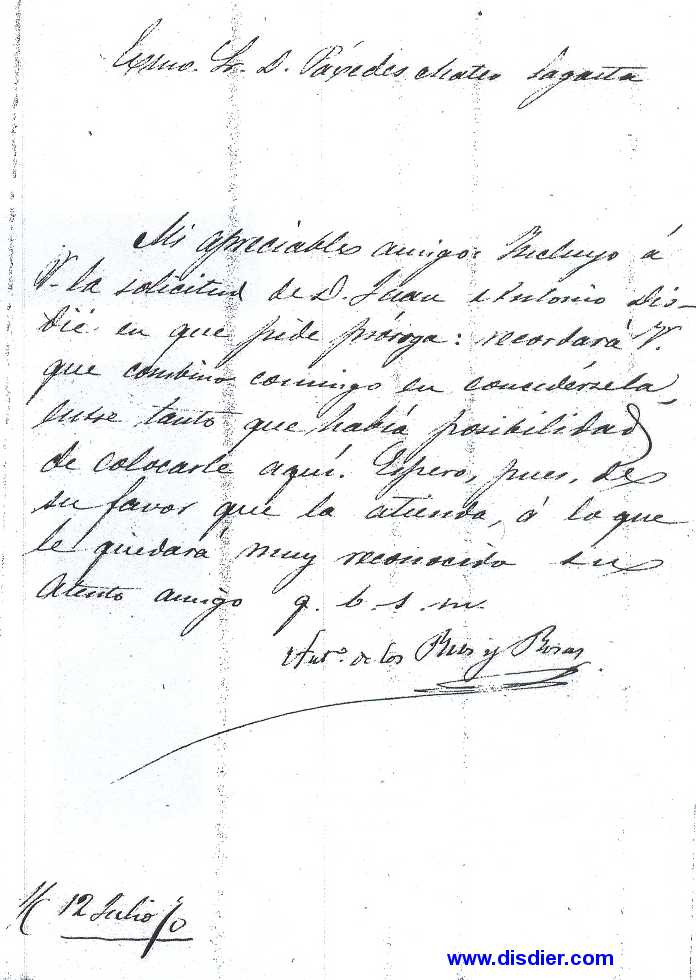 Exmo. Sr. D. Práxedes Mateo Sagasta
Mi apreciable amigo: Incluyo á
V. la solicitud de D. Juan Antonio Dis-
dié en que pide próroga: recordará V.
que combino comingo en concedérsela,
entre tanto que había posibilidad
de colocarle aquí. Espero, pues, de
su favor que la atienda, á lo que
le quedará muy reconocido su
atento amigo q. b. s. m.
Anto. de los Rios y Rosas
12 Julio 70
www.disdier.com